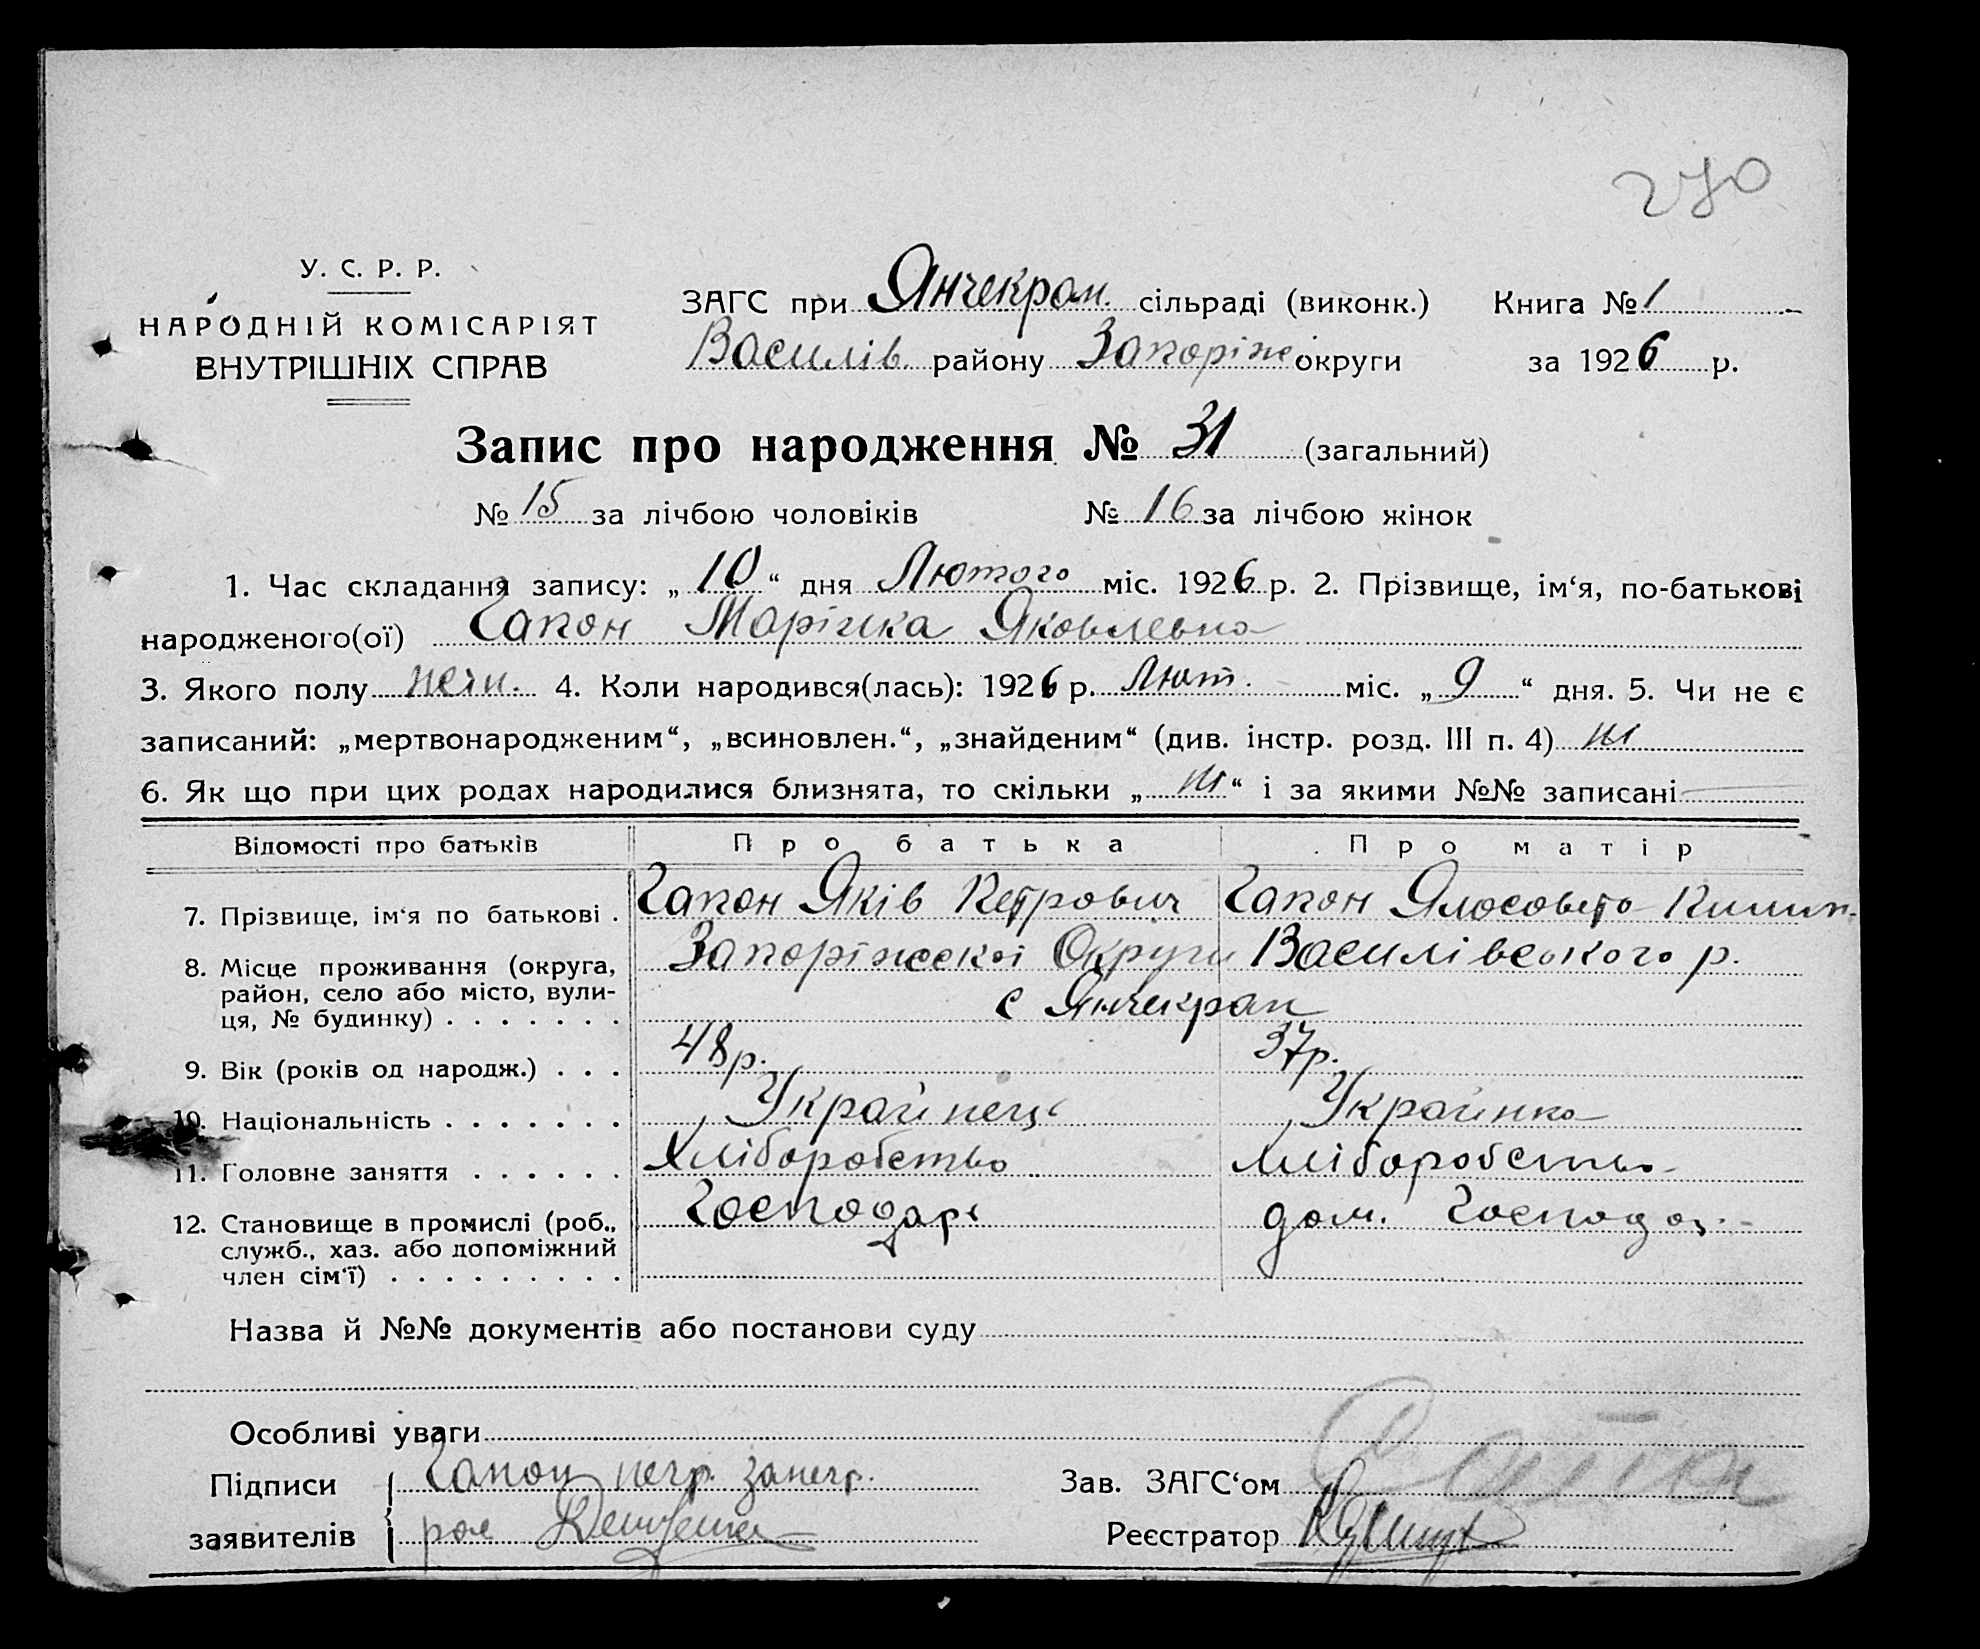 270
У. С. Р. Р.
НАРОДНІЙ КОМІСАРІЯТ
ВНУТРІШНІХ СПРАВ
ЗАГС при Янчекрак. сільраді (виконк.) Книга № 1
Василів. району Запоріж округи за 1926 р.
Запис про народження № 31 (загальний)
№ 15 за лічбою чоловіків № 16 за лічбою жінок
1. Час складання запису: „10“ дня Лютого міс. 1926 р. 2. Прізвище, ім‘я, по-батькові
народженого(ої) Гапон Марійка Яковлевна
3. Якого полу жін. 4. Коли народився(лась): 1926 р. Лют. міс. „9“ дня. 5. Чи не є
записаний: „мертвонародженим“, „всиновлен.“, „знайденим“ (див. інстр. розд. III п. 4) ні
6. Як що при цих родах народилися близнята, то скільки „ні“ і за якими №№ записані
Відомості про батьків Про батька Про матір
7. Прізвище, ім‘я по батькові . Гапон Яків Петрович Гапон Ялосовета
8. Місце проживання (округа, Запоріжської Округи Василівського р.
район, село або місто, вули-
ця, № будинку) . . . . . . . с Янчекрак
9. Вік (років од народж.) . . . 48 р. 37 р.
10. Національність . . . . . . . Українець Українка
11. Головне заняття . . . . . . Хліборобство Хліборобство
12. Становище в промислі (роб., Господарь дом. Господар.
служб., хаз. або допоміжний
член сім‘ї) . . . . . . . . .
Назва й №№ документів або постанови суду
Особливі уваги
Підписи Гапон
заявителів
Зав. ЗАГС‘ом
Реєстратор